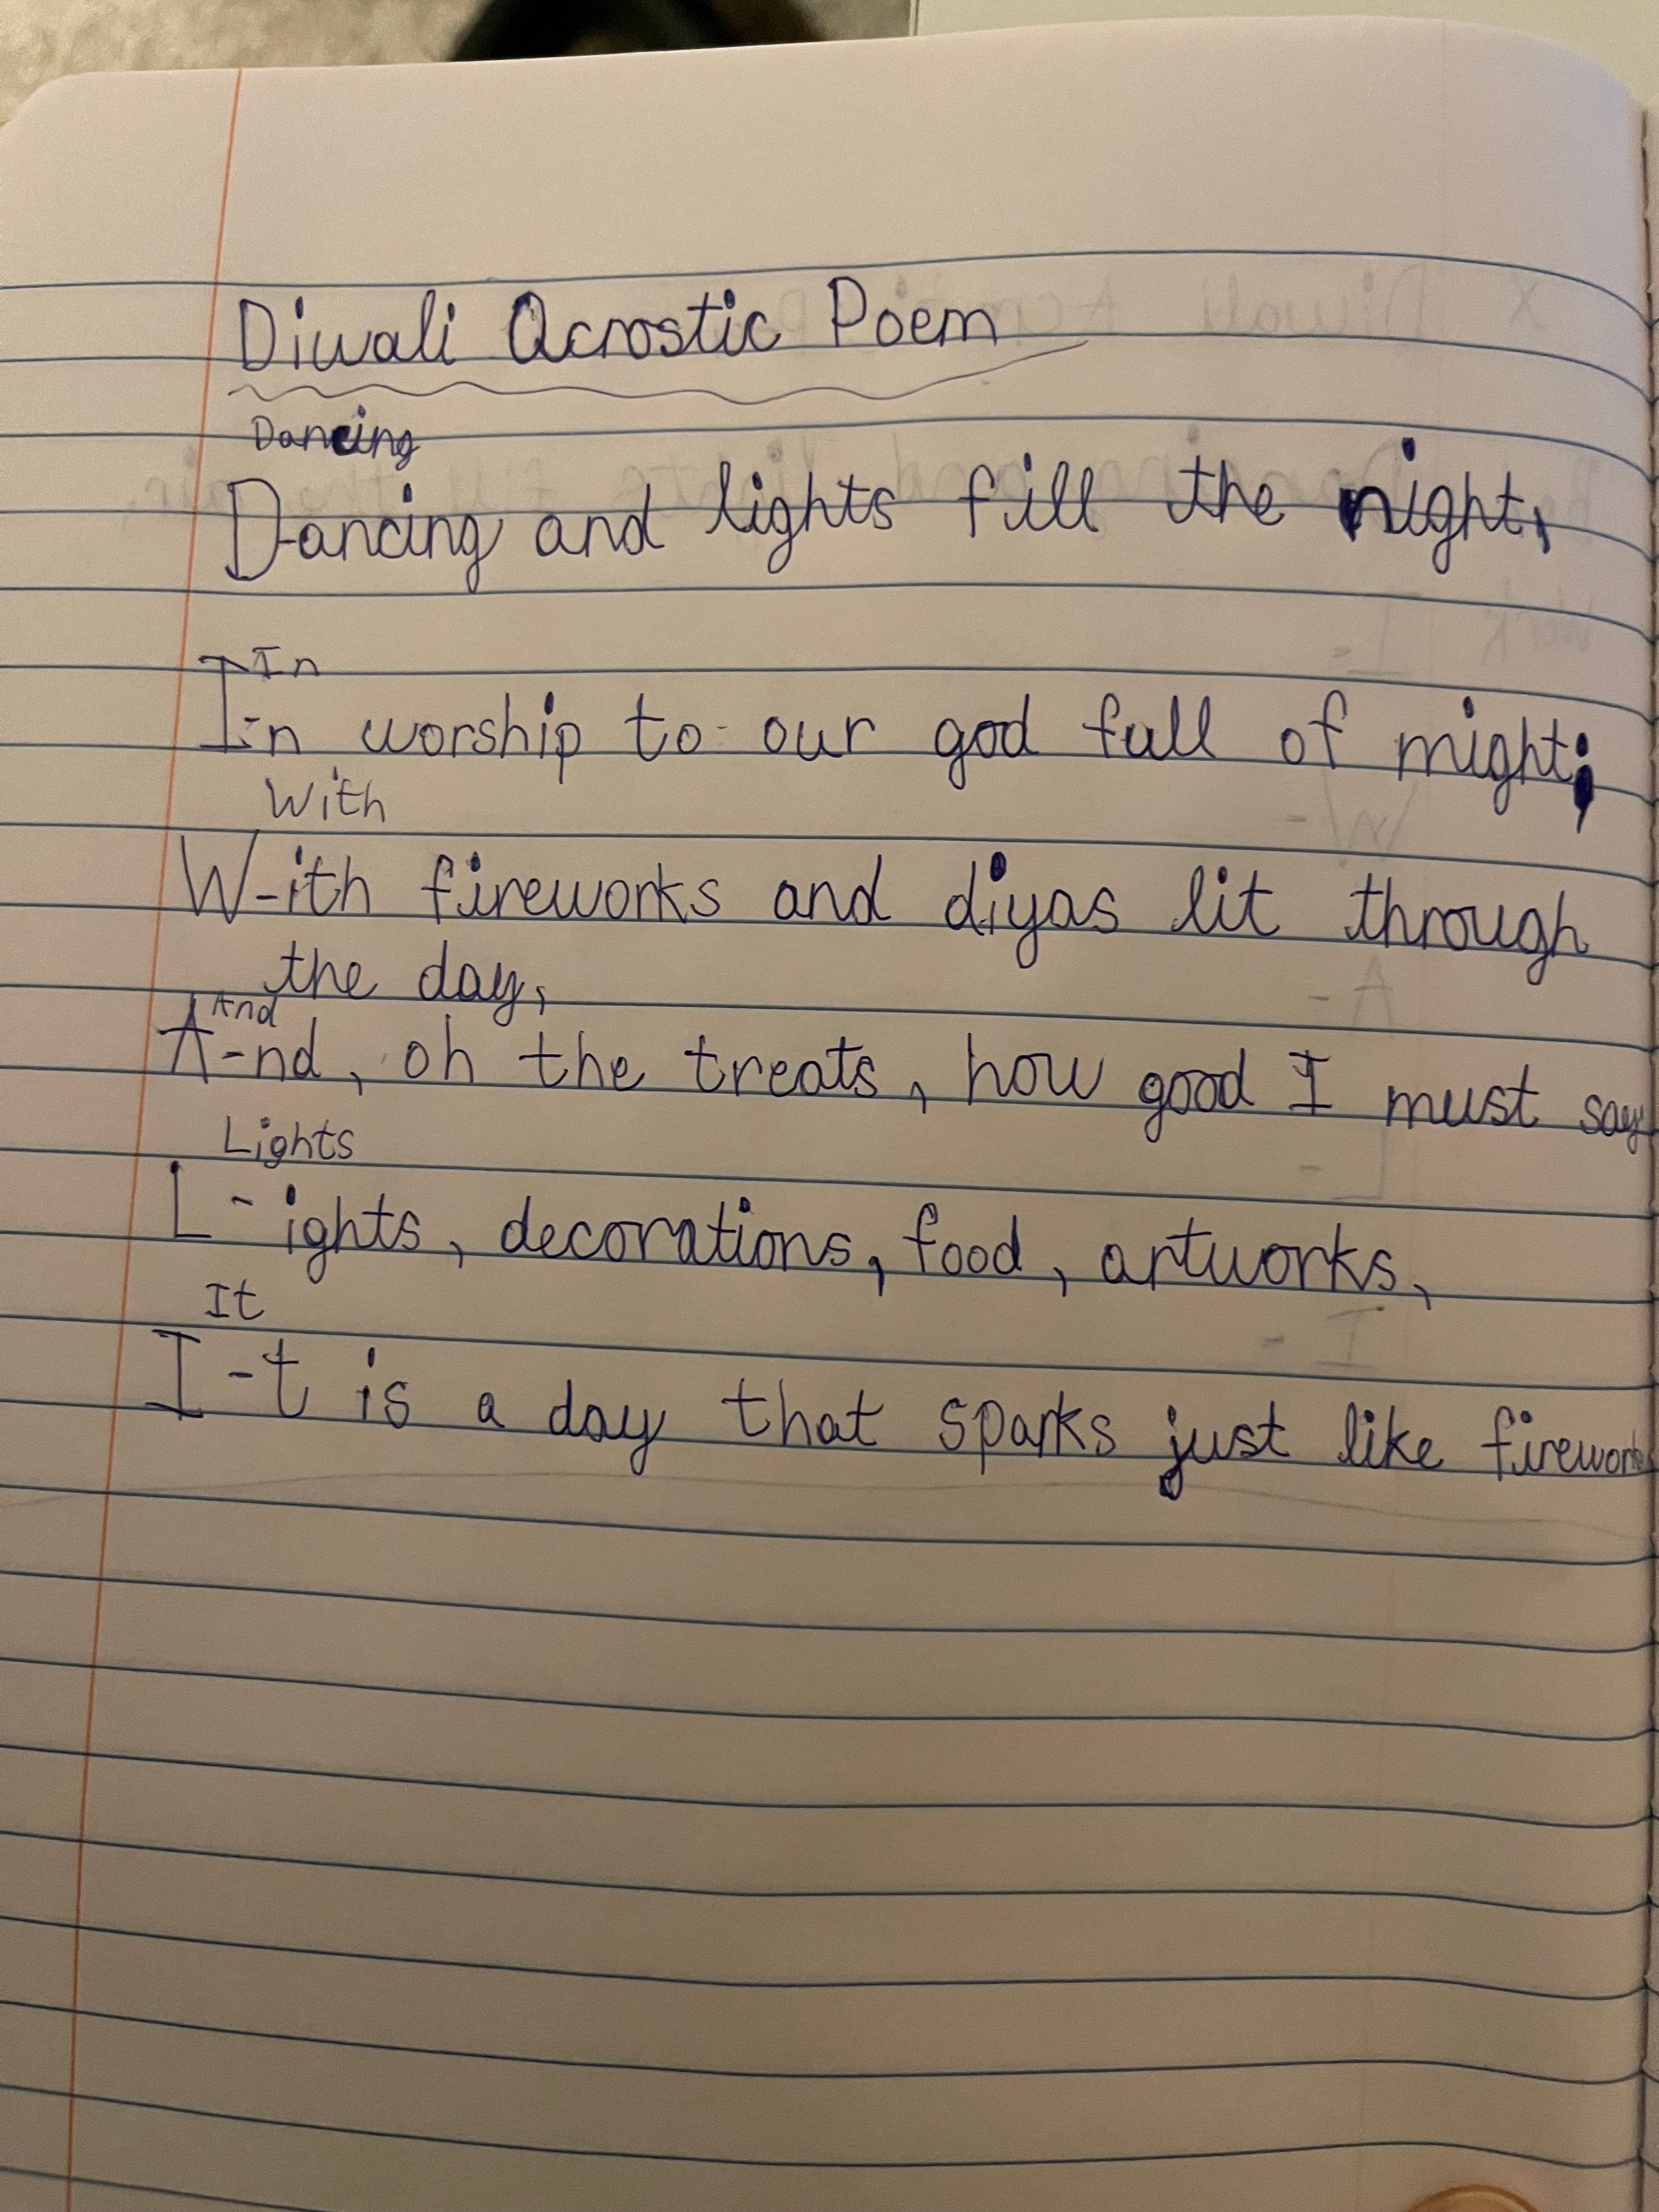 Diwali Acrostic Poem
Dancing
D-ancing and lights fill the night,
In
I-n worship to our god full of might;
With
W-ith fireworks and diyas lit through
the day,
And
A-nd, oh the treats, how good I must say
Lights
L-ights, decorations, food, artworks,
It
I-t is a day that sparks just like fireworks